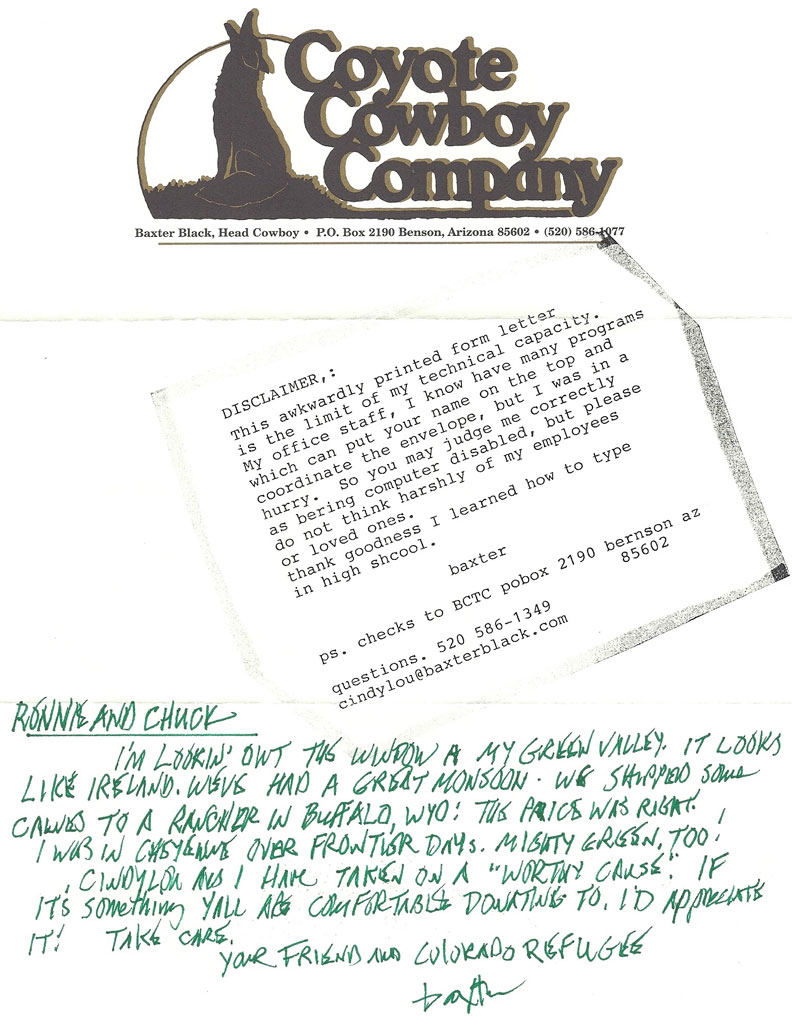 Coyote
Cowboy
Company
Baxter Black, Head Cowboy • P.O. Box 2190 Benson, Arizona 85602 • (520) 586-1077
DISCLAIMER,:
This awkwardly printed form letter
is the limit of my technical capacity.
My office staff, I know have many programs
which can put your name on the top and
coordinate the envelope, but I was in a
hurry. So you may judge me correctly
as bering computer disabled, but please
do not think harshly of my employees
or loved ones.
thank goodness I learned how to type
in high shcool.
baxter
ps. checks to BCTC pobox 2190 bernson az
85602
questions. 520 586-1349
cindylou@baxterblack.com
RONNIE AND CHUCK
I'M LOOKIN' OWT THE WINDOW A MY GREEN VALLEY. IT LOOKS
LIKE IRELAND. WE'VE HAD A GREAT MONSOON. WE SHIPPED SOME
CALVES TO A RANCHER IN BUFFALO, WYO! THE PRICE WAS RIGHT.
I WAS IN CHEYENNE OVER FRONTIER DAYS. MIGHTY GREEN, TOO!
CINDYLOU AND I HAVE TAKEN ON A "WORTHY CAUSE". IF
IT'S SOMETHING YALL ARE COMFORTABLE DONATING TO, I'D APPRECIATE
IT! TAKE CARE.
YOUR FRIEND AND COLORADO REFUGEE
baxter